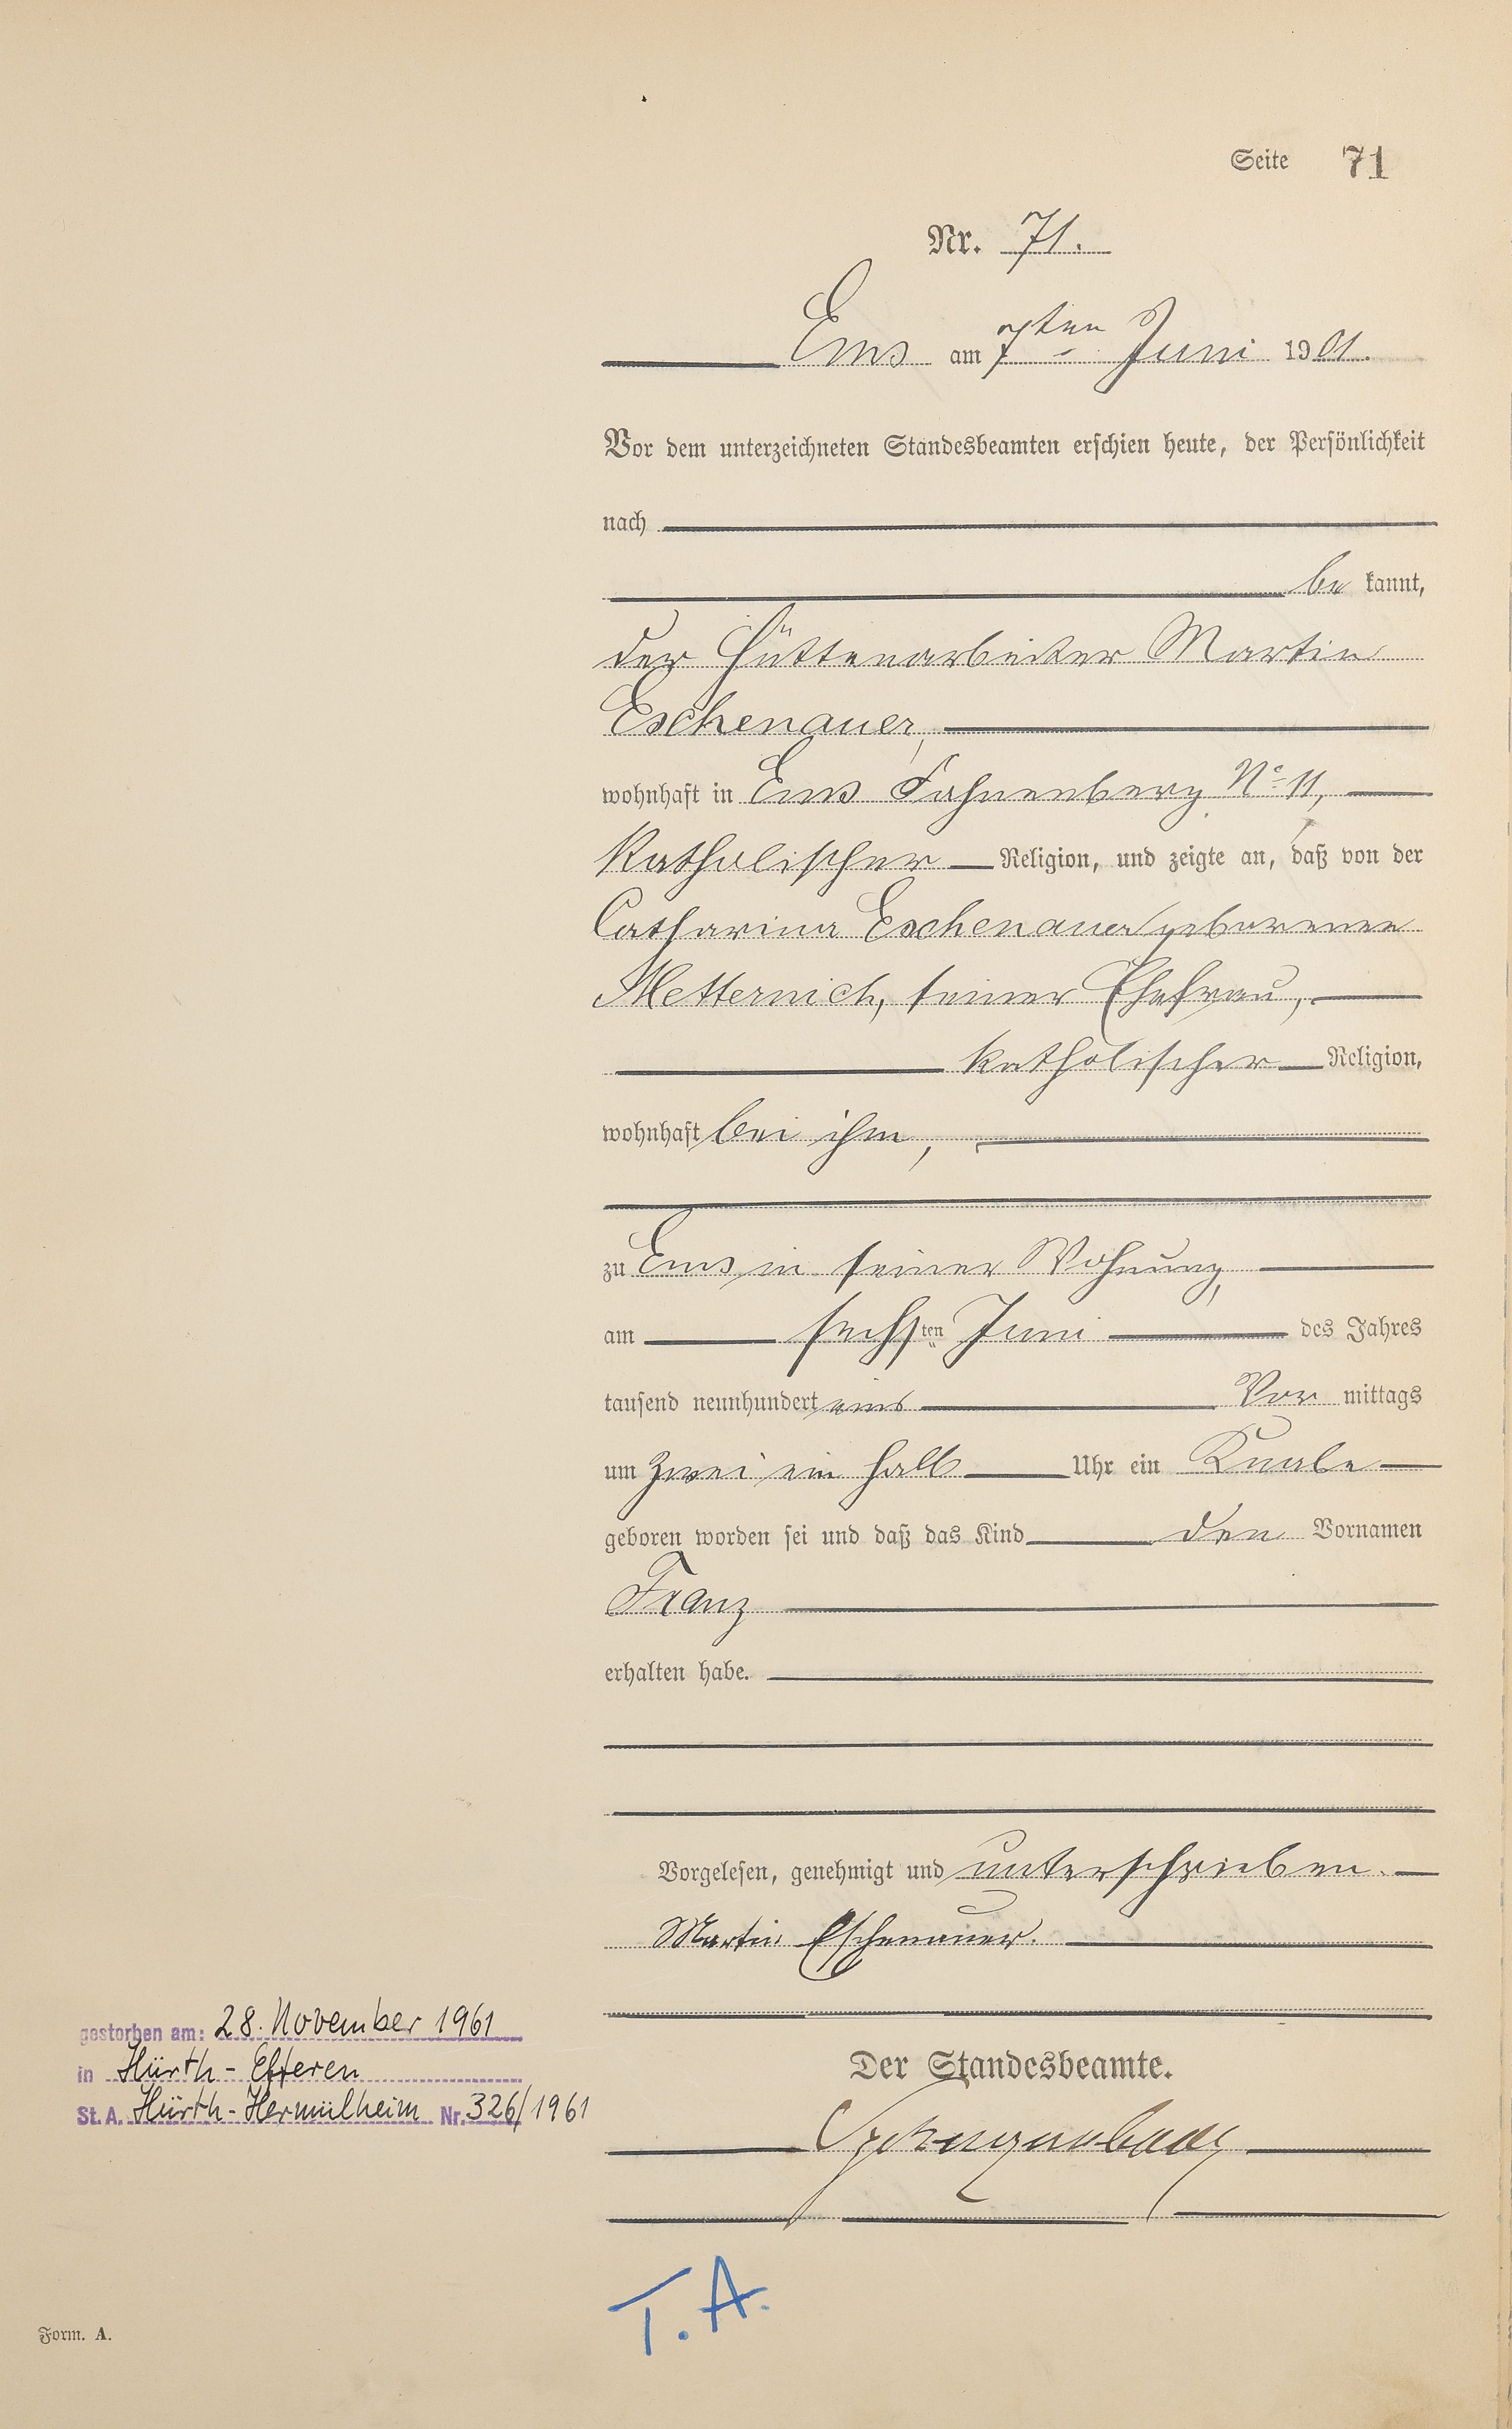 Seite 71
Nr. 71.
Ems am 7ten Juni 1901.
Vor dem unterzeichneten Standesbeamten erschien heute, der Persönlichkeit
nach
be kannt,
der Hüttenarbeiter Martin
Eschenauer,
wohnhaft in Ems Fahnenberg No 11,
katholischer Religion, und zeigte an, daß von der
Catharina Eschenauer geborenen
Metternich, seiner Ehefrau,
katholischer Religion,
wohnhaft bei ihm,
zu Ems in seiner Wohnung,
am sechsten Juni des Jahres
tausend neunhundert eins Vor mittags
um zwei ein halb Uhr ein Knabe
geboren worden sei und daß das Kind den Vornamen
Franz
erhalten habe.
Vorgelesen, genehmigt und unterschrieben.
Martin Eschenauer.
gestorben am: 28. November 1961
in Hürth-Efferen
St. A. Hürth-Hermülheim Nr. 326/1961
Der Standesbeamte.
T. A.
Form. A.